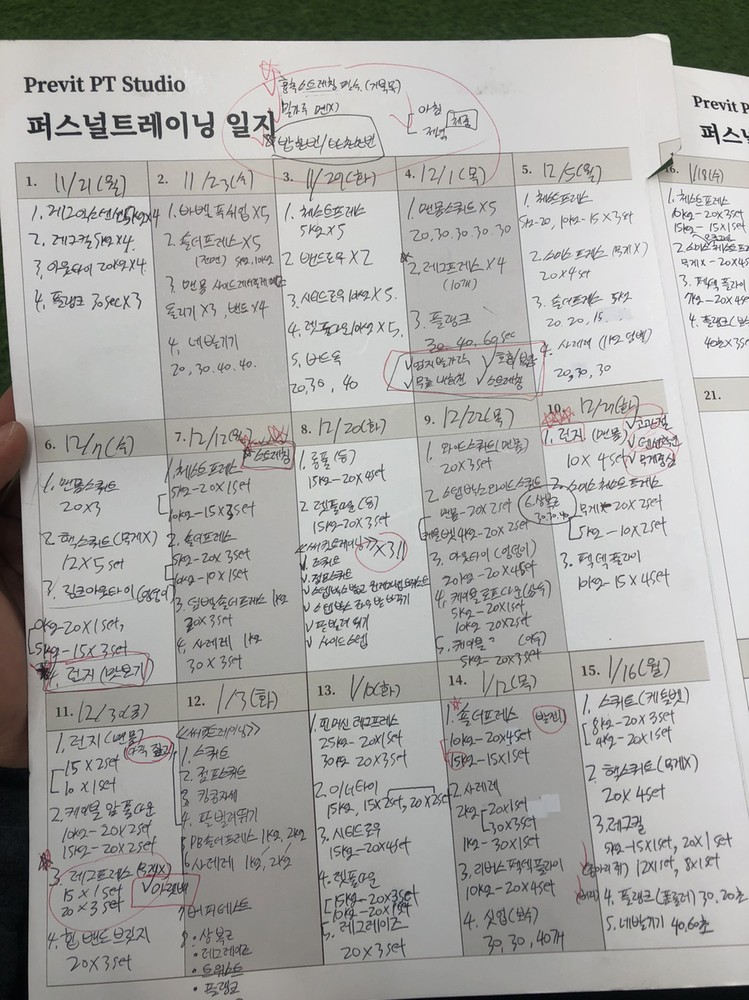 Previt PT Studio
퍼스널트레이닝 일지
흉추스트레칭
아침
저녁
체중
1. 11/21(월)
1. 레그익스텐션 5kg×4
2. 레그컬 5kg×4.
3. 아웃타이 20kg×4.
4. 플랭크 30sec×3
2. 11/23(수)
1. 바벨 푹쉬업×5
2. 숄더프레스×5
5kg, 10kg
3. 맨몸 사이드레터럴레이즈
돌리기×3, 밴드×4
4. 네발기기
20, 30. 40. 40.
3. 11/29(화)
1. 체스트프레스
5kg×5
2. 밴드로우×2
3. 시티드로우 10kg×5.
4. 렛풀다운 10kg×5.
5. 버드독
20, 30, 40
4. 12/1(목)
1. 맨몸스쿼트×5
20, 30. 30. 30. 30
2. 레그프레스×4
(10개)
3. 플랭크
30 - 40. 60sec
✓ 엄지발가락
✓ 호흡/복압
✓ 스트레칭
5. 12/5(월)
1. 체스트프레스
5kg-20, 10kg-15×3set
2. 스미스 프레스 (무게X)
20×4set
3. 숄더프레스 5kg
20. 20, 15
4. 사레레 (1kg 덤벨)
20, 30, 30
6. 12/7(수)
1. 맨몸스쿼트
20×3
2. 핵스쿼트(무게X)
12×5set
3. 핌크아웃타이 (엉덩이)
10kg-20×1set,
5kg-15×3set
4. 런지 (맛보기)
7. 12/12(월)
스트레칭
1. 체스트프레스
5kg-20×1set
10kg-15×3set
2. 숄더프레스
5kg-20×3set
10kg-10×1set
3. 덤벨숄더프레스 1kg
20×3set
4. 사레레 1kg
30×3set
8. 12/20(화)
1. 롱풀(등)
15kg-20×4set
2. 렛풀다운(등)
15kg-20×3set
<<써킷트레이닝>>×3!!
✓ 스쿼트
✓ 점프스쿼트
✓ 팔벌려뛰기
✓ 사이드스텝
9. 12/22(목)
1. 와이드스쿼트(맨몸)
20×3set
2. 스텝박스와이드스쿼트
맨몸-20×2set
케틀벨4kg-20×2set
3. 아웃타이(엉덩이)
20kg-20×4set
4. 케이블로프다운(삼두)
5kg-20×1set
10kg 20×2set
5. 케이블 〃 (이두)
5kg-20×3set
6. 상복근
30. 30. 40
10. 12/27(화)
1. 런지 (맨몸)
10×4set
✓ 고관절
✓ 무게중심
2. 스미스체스트프레스
무게X 20×2set
5kg-10×2set
3. 펙덱플라이
10kg-15×4set
11. 12/30(금)
1. 런지(맨몸)
15×2set
10×1set
2. 케이블 암풀다운
10kg-20×2set
15kg-20×2set
3. 레그프레스(무게X)
15×1set
20×3set
✓아랫배
4. 힙 밴드 브릿지
20×3set
12. 1/3(화)
<<써킷트레이닝>>
1. 스쿼트
2. 점프스쿼트
3. 킹콩자세
4. 팔벌려뛰기
5. DB숄더프레스 1kg, 2kg
6. 사레레 1kg, 2kg
7. 버피테스트
8. · 상복근
· 레그레이즈
· 트위스트
· 플랭크
13. 1/10(화)
1. 핀머신 레그프레스
25kg-20×1set
30kg 20×3set
2. 이너타이
15kg, 15×2set, 20×2set
3. 시티드로우
15kg-20×4set
4. 렛풀다운
15kg-20×3set
10kg-20×1set
5. 레그레이즈
20×3set
14. 1/12(목)
1. 숄더프레스
발전!
10kg-20×4set
15kg-15×1set
2. 사레레
2kg-20×1set
30×3set
1kg-30×1set
3. 리버스펙덱플라이
10kg-20×4set
4. 싯업(보수)
30, 30, 40개
15. 1/16(월)
1. 스쿼트(케틀벨)
8kg-20×3set
4kg-20×1set
2. 핵스쿼트(무게X)
20×4set
3. 레그컬
5kg-15×1set, 20×1set
12×1set, 8×1set
4. 플랭크(폼롤러) 30, 20초
5. 네발기기 40, 60초
Previt P
퍼스
16. 1/18(수)
1. 체스트프레스
10kg-20×3set
15kg-15×1set
2. 스미스체스트프
무게X-20×4s
3. 펙덱 플라이
4. 플랭크(보
40초×3s
21.